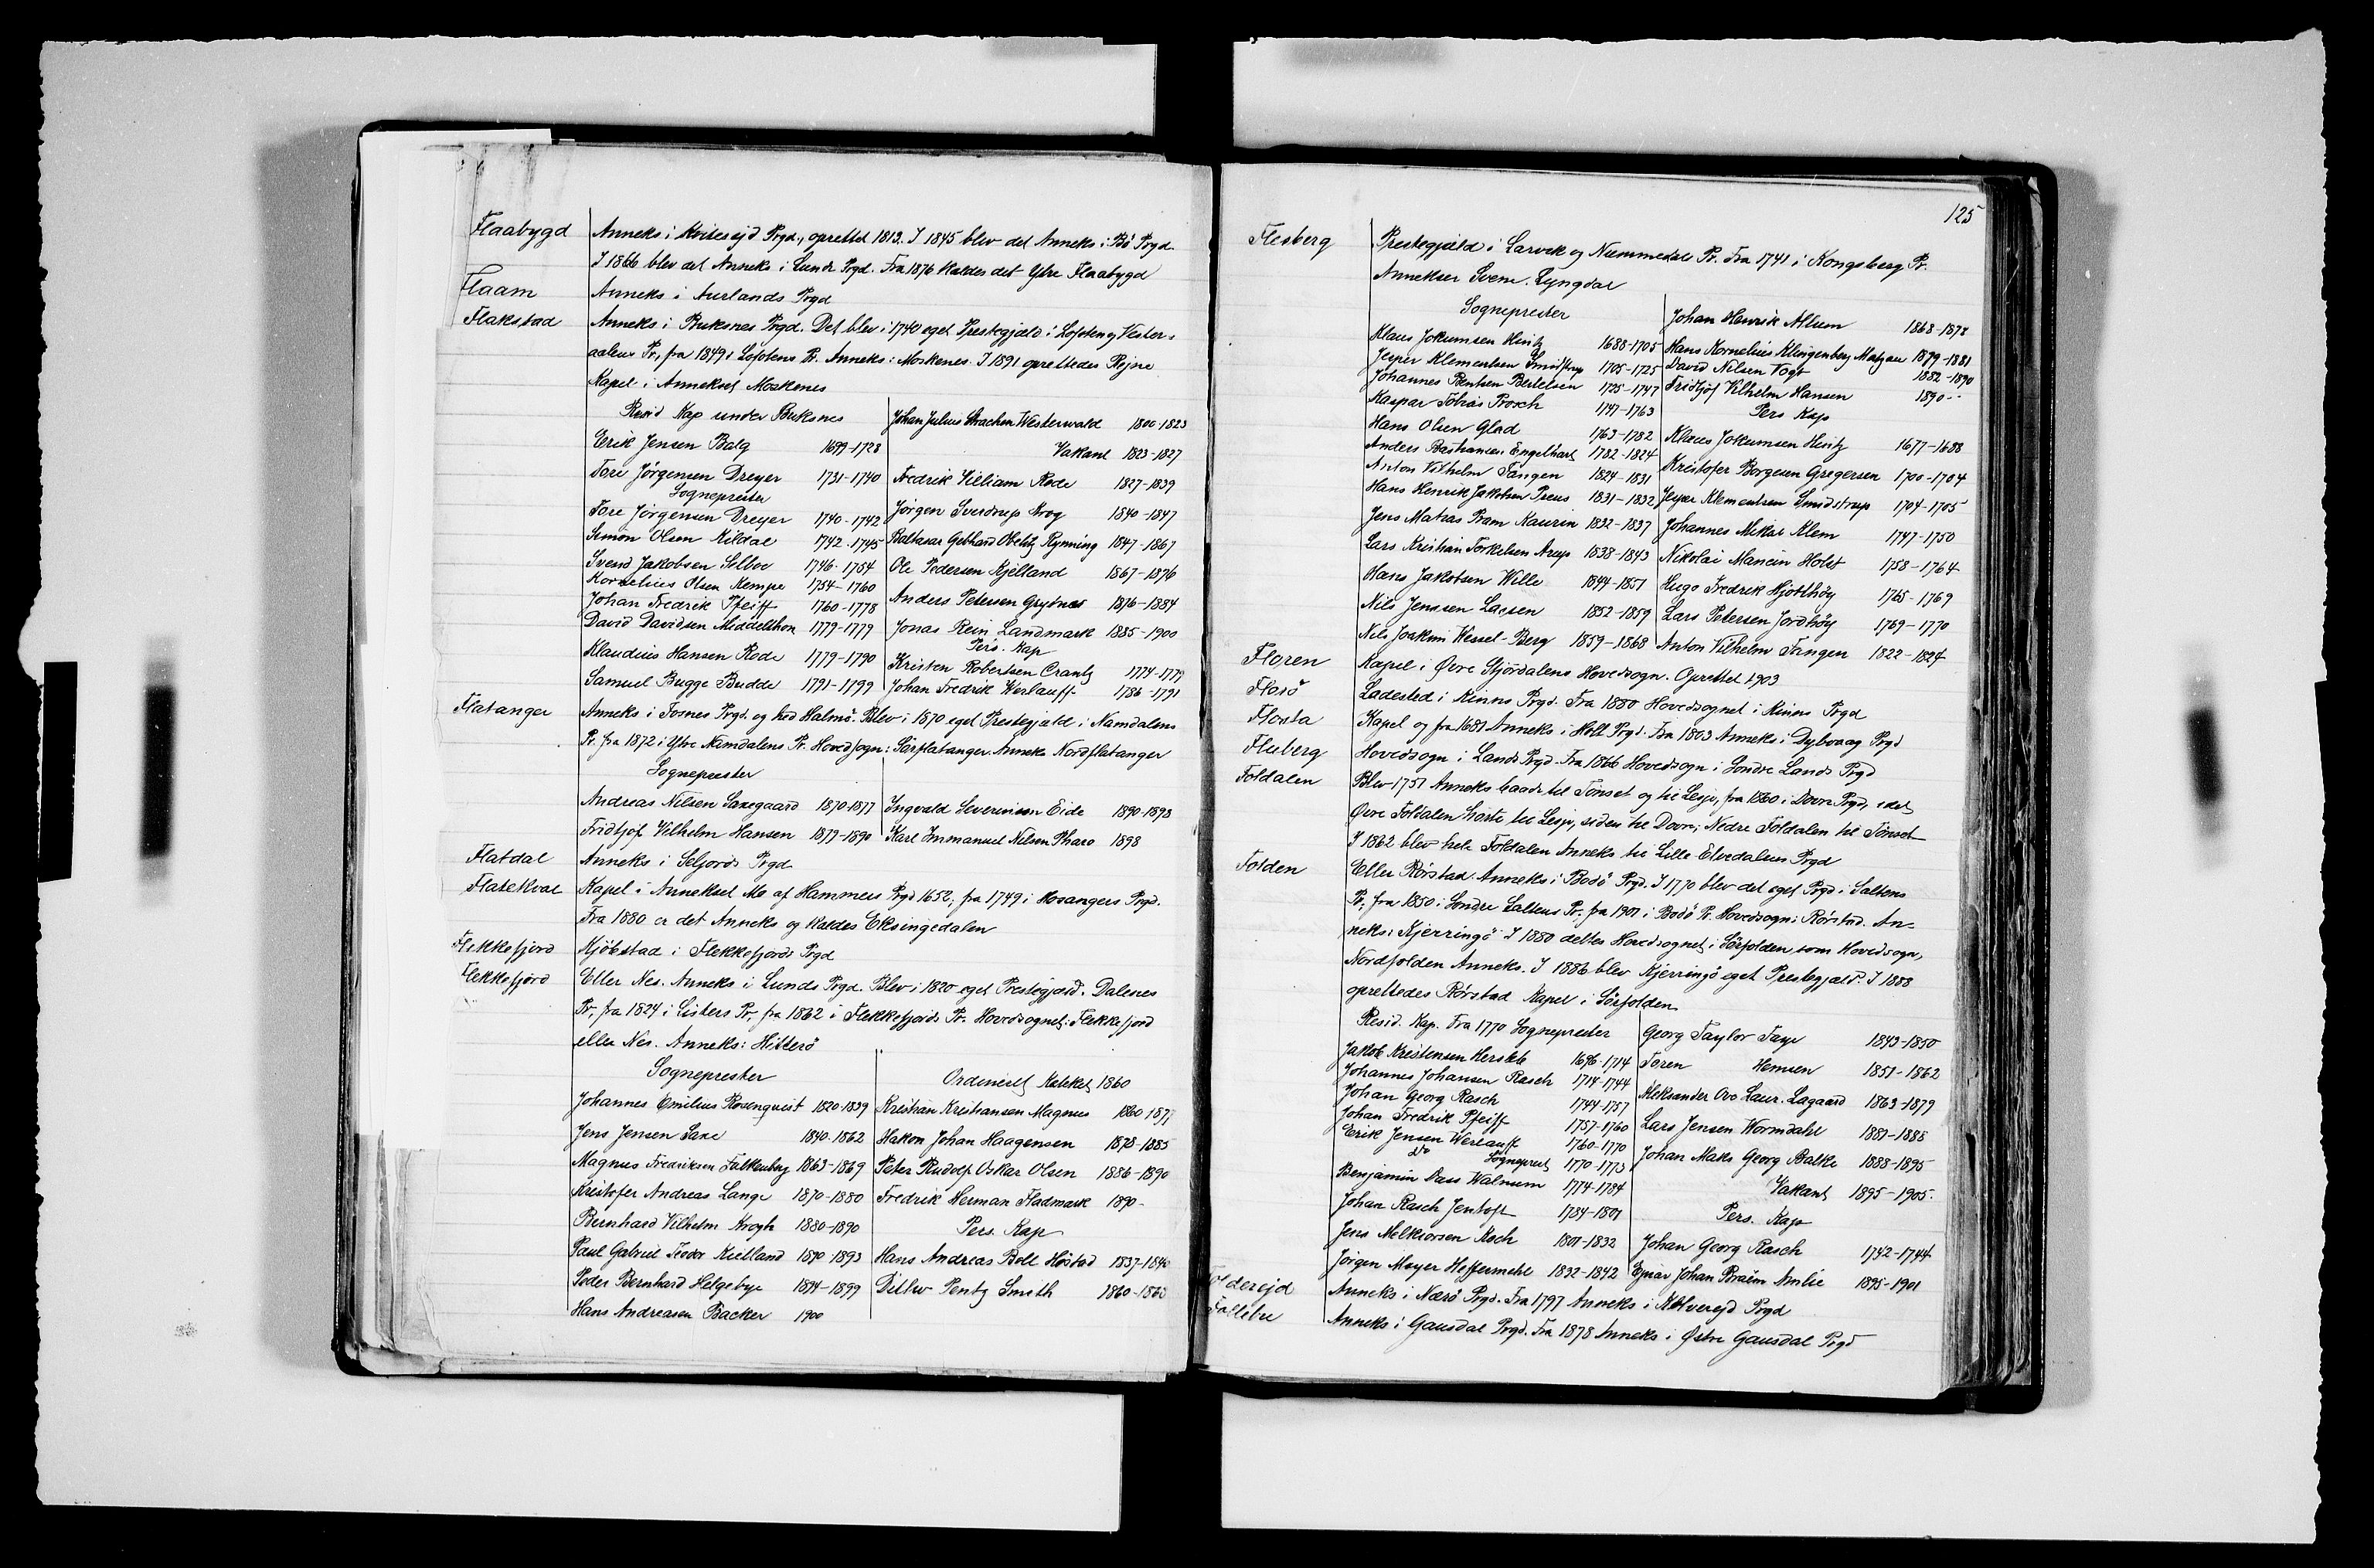 Flaabygd Anneks i Kvitesejd Prgd., oprettet 1813. I 1845 blev det Anneks i Bö Prgd.
I 1866 blev det Anneks i Lunde Prgd. Fra 1876 kaldes det Ytre Flaabygd
Flaam Anneks i Aurlands Prgd
Flakstad Anneks i Buksnes Prgd. Det blev i 1740 eget Prestegjæld i Lofoten og Vester-
aalens Pr, fra 1849 i Lofotens Pr. Anneks: Moskenes. I 1891 oprettedes Rejne
Kapel i Annekset Moskenes
Resid Kap under Buksnes
Erik Jensen Balg 1699-1728
Tore Jörgensen Dreyer 1731-1740
Sogneprester
Tore Jörgensen Dreyer 1740-1742
Simon Olsen Kildal 1742-1745
Svend Jakobsen Selboe 1746-1754
Kornelius Olsen Kempe 1754-1760
Johan Fredrik Pfeiff 1760-1778
David Davidsen Middelthon 1779-1779
Klaudius Hansen Rode 1779-1790
Samuel Bugge Budde 1791-1799
Johan Julius Strachan Westerwald 1800-1823
Vakant 1823-1827
Fredrik William Rode 1827-1839
Jörgen Sverdrup Krog 1840-1847
Baltasar Gebhard Rynning 1847-1867
Ole Pedersen Kjelland 1867-1876
Anders Petersen Grytnes 1876-1884
Jonas Rein Landmark 1885-1900
Pers. Kap
Kristen Robertsen Crantz 1774-1779
Johan Fredrik Werlauff 1786-1791
Flatanger Anneks i Fosnes Prgd. og hed Halmö. Blev i 1870 eget Prestegjæld i Namdalens
Pr. fra 1872 i Ytre Namdalens Pr. Hovedsogn: Sörflatanger. Anneks Nordflatanger
Sogneprester
Andreas Nilsen Saxegaard 1870-1877
Fridtjof Vilhelm Hansen 1879-1890
Ingvald Severinsen Eide 1890-1898
Karl Immanuel Nilsen Pharo 1898
Flatdal Anneks i Seljords Prgd
Flatekval Kapel i Annekset Mo af Hammers Prgd 1652, fra 1749 i Hosangers Prgd.
Fra 1880 er det Anneks og kaldes Eksingedalen
Flekkefjord Kjöbstad i Flekkefjords Prgd
Flekkefjord Eller Nes. Anneks i Lunds Prgd. Blev i 1820 eget Prestegjæld. Dalenes
Pr, fra 1824 i Listers Pr, fra 1862 i Flekkefjords Pr. Hovedsognet: Flekkefjord
eller Nes. Anneks: Hitterö
Sogneprester
Johannes Emilius Rosenquist 1820-1839
Jens Jensen Saxe 1840-1862
Magnus Fredriksen Falkenberg 1863-1869
Kristofer Andreas Lange 1870-1880
Bernhard Vilhelm Krogh 1880-1890
Paul Gabriel Teodor Kielland 1890-1893
Peder Bernhard Helgebye 1894-1899
Hans Andreasen Backer 1900
Ordineret Kateket 1860
Kristian Kristiansen Magnus 1860-1877
Hakon Johan Haagensen 1878-1885
Peter Rudolf Oskar Olsen 1886-1890
Fredrik Herman Fladmark 1890-
Pers. Kap
Hans Andreas Boll Höstad 1837-1840
Ditlev Pentz Smith 1860-1860
125
Flesberg Prestegjæld i Larvik og Nummedals Pr. Fra 1741 i Kongsberg Pr.
Annekser Svene. Lyngdal
Sogneprester
Klaus Jokumsen Hintz 1688-1705
Jesper Klementsen Smidstrup 1705-1725
Johannes Bentsen Bertelsen 1725-1747
Kaspar Tobias Brosch 1747-1763
Hans Olsen Glad 1763-1782
Anders Bastiansen Engelhart 1782-1824
Anton Vilhelm Tangen 1824-1831
Hans Henrik Jakobsen Preus 1831-1832
Jens Matias Pram Kaurin 1832-1837
Lars Kristian Torkelsen Arup 1838-1843
Hans Jakobsen Wille 1844-1851
Nils Jenssen Lassen 1852-1859
Nils Joakim Wessel-Berg 1859-1868
Johan Henrik Alsen 1868-1878
Hans Kornelius Klingenberg Matzau 1879-1881
David Nilsen Vogt 1882-1890
Fridtjof Vilhelm Hansen 1890-
Pers Kap
Klaus Jokumsen Hintz 1677-1688
Kristofer Borgesen Gregersen 1700-1704
Jesper Klementsen Smidstrup 1704-1705
Johannes Mikal Klem 1747-1750
Nikolai Mancin Holst 1758-1764
Hugo Fredrik Hjorthöy 1765-1769
Lars Petersen Jordhöy 1769-1770
Anton Vilhelm Tangen 1822-1824
Floren Kapel i Övre Stjördalens Hovedsogn. Oprettet 1903
Florö Ladested i Kinns Prgd. Fra 1880 Hovedsognet i Kinns Prgd
Flosta Kapel og fra 1681 Anneks i Holt Prgd. Fra 1803 Anneks i Dybvaag Prgd
Fluberg Hovedsogn i Lands Prgd. Fra 1866 Hovedsogn i Söndre Lands Prgd
Foldalen Blev 1751 Anneks baade til Tönset og til Lesje, fra 1860 i Dovre Prgd, idet
Övre Foldalen hörte til Lesje, siden til Dovre, Nedre Foldalen til Tönset
I 1862 blev hele Foldalen Anneks til Lille Elvedalens Prgd
Folden Eller Rörstad. Anneks i Bodö Prgd. I 1770 blev det eget Prgd. i Saltens
Pr, fra 1850 i Söndre Saltens Pr, fra 1901 i Bodö Pr. Hovedsogn: Rörstad. An-
neks: Kjerringö. I 1880 deltes Hovedsognet i Sörfolden som Hovedsogn,
Nordfolden Anneks. I 1886 blev Kjerringö eget Prestegjæld. I 1888
oprettedes Rörstad Kapel i Sörfolden
Resid. Kap. Fra 1770 Sogneprester
Jakob Kristensen Hersleb 1696-1714
Johannes Johansen Rasch 1714-1744
Johan Georg Rasch 1744-1757
Johan Fredrik Pfeiff 1757-1760
Erik Jensen Werlauff 1760-1770
do Sogneprest 1770-1773
Benjamin Dass Walnum 1774-1784
Johan Rasch Jentoft 1784-1801
Jens Melkiorsen Koch 1801-1832
Jörgen Moyer Heffermehl 1832-1842
Georg Taylor Faye 1843-1850
Sören Hemsen 1851-1862
Aleksander Ove Laur. Lagaard 1863-1879
Lars Jensen Wormdahl 1881-1888
Johan Maks Georg Balke 1888-1895
Vakant 1895-1905.
Pers. Kap
Johan Georg Rasch 1742-1744
Ejnar Johan Braüm Amlie 1895-1901
Folderejd Anneks i Nærö Prgd. Fra 1797 Anneks i Kolverejd Prgd
Follebu Anneks i Gausdal Prgd. Fra 1878 Anneks i Östre Gausdal Prgd